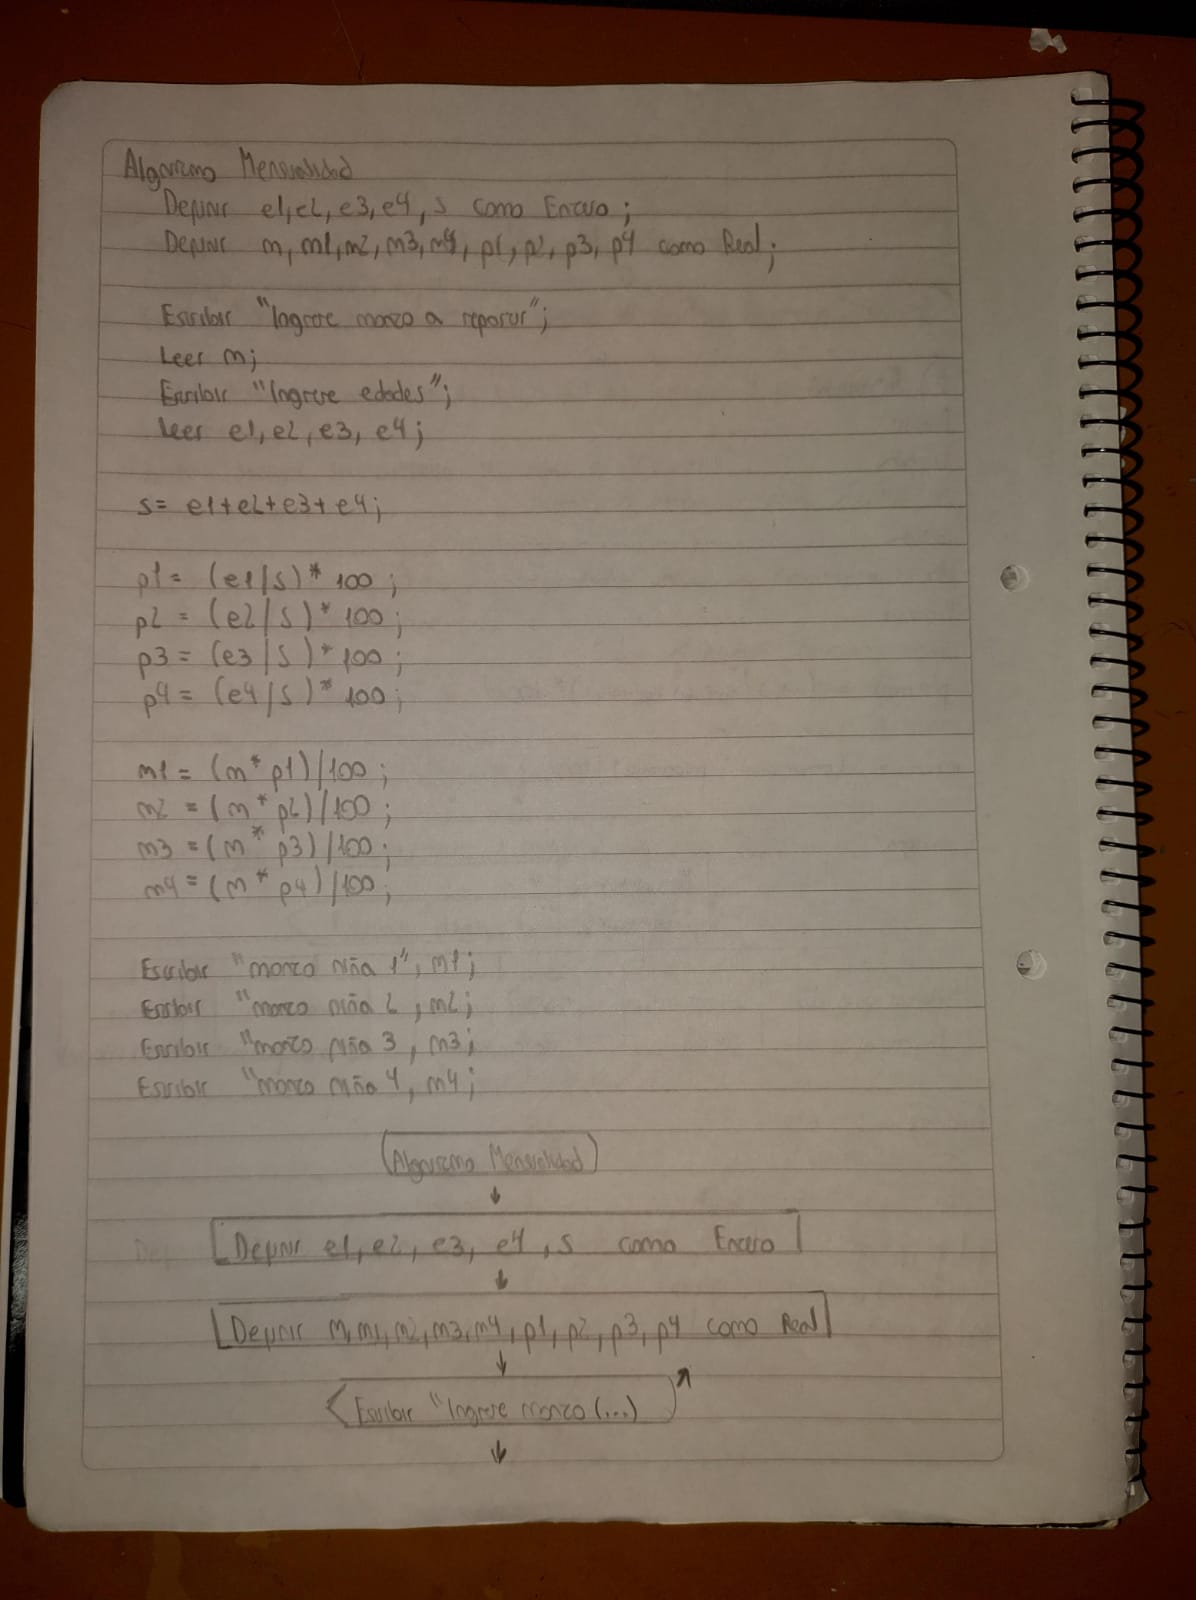 Algoritmo Mensualidad
Definir e1, e2, e3, e4, s como Entero;
Definir m, m1, m2, m3, m4, p1, p2, p3, p4 como Real;
Escribir "Ingrese monto a repartir";
Leer m;
Escribir "Ingrese edades";
Leer e1, e2, e3, e4;
s= e1+e2+e3+e4;
p1= (e1/s)* 100;
p2 = (e2/s)* 100;
p3 = (e3/s)* 100;
p4 = (e4/s)* 100;
m1 = (m* p1)/100;
m2 = (m* p2)/100;
m3 = (m* p3)/100;
m4 = (m* p4)/100;
Escribir "monto niña 1", m1;
Escribir "monto niña 2, m2;
Escribir "monto niña 3, m3;
Escribir "monto niña 4, m4;
Algoritmo Mensualidad
↓
Definir e1, e2, e3, e4, s como Entero
↓
Definir m, m1, m2, m3, m4, p1, p2, p3, p4 como Real
↓
Escribir "Ingrese monto (...)
↓